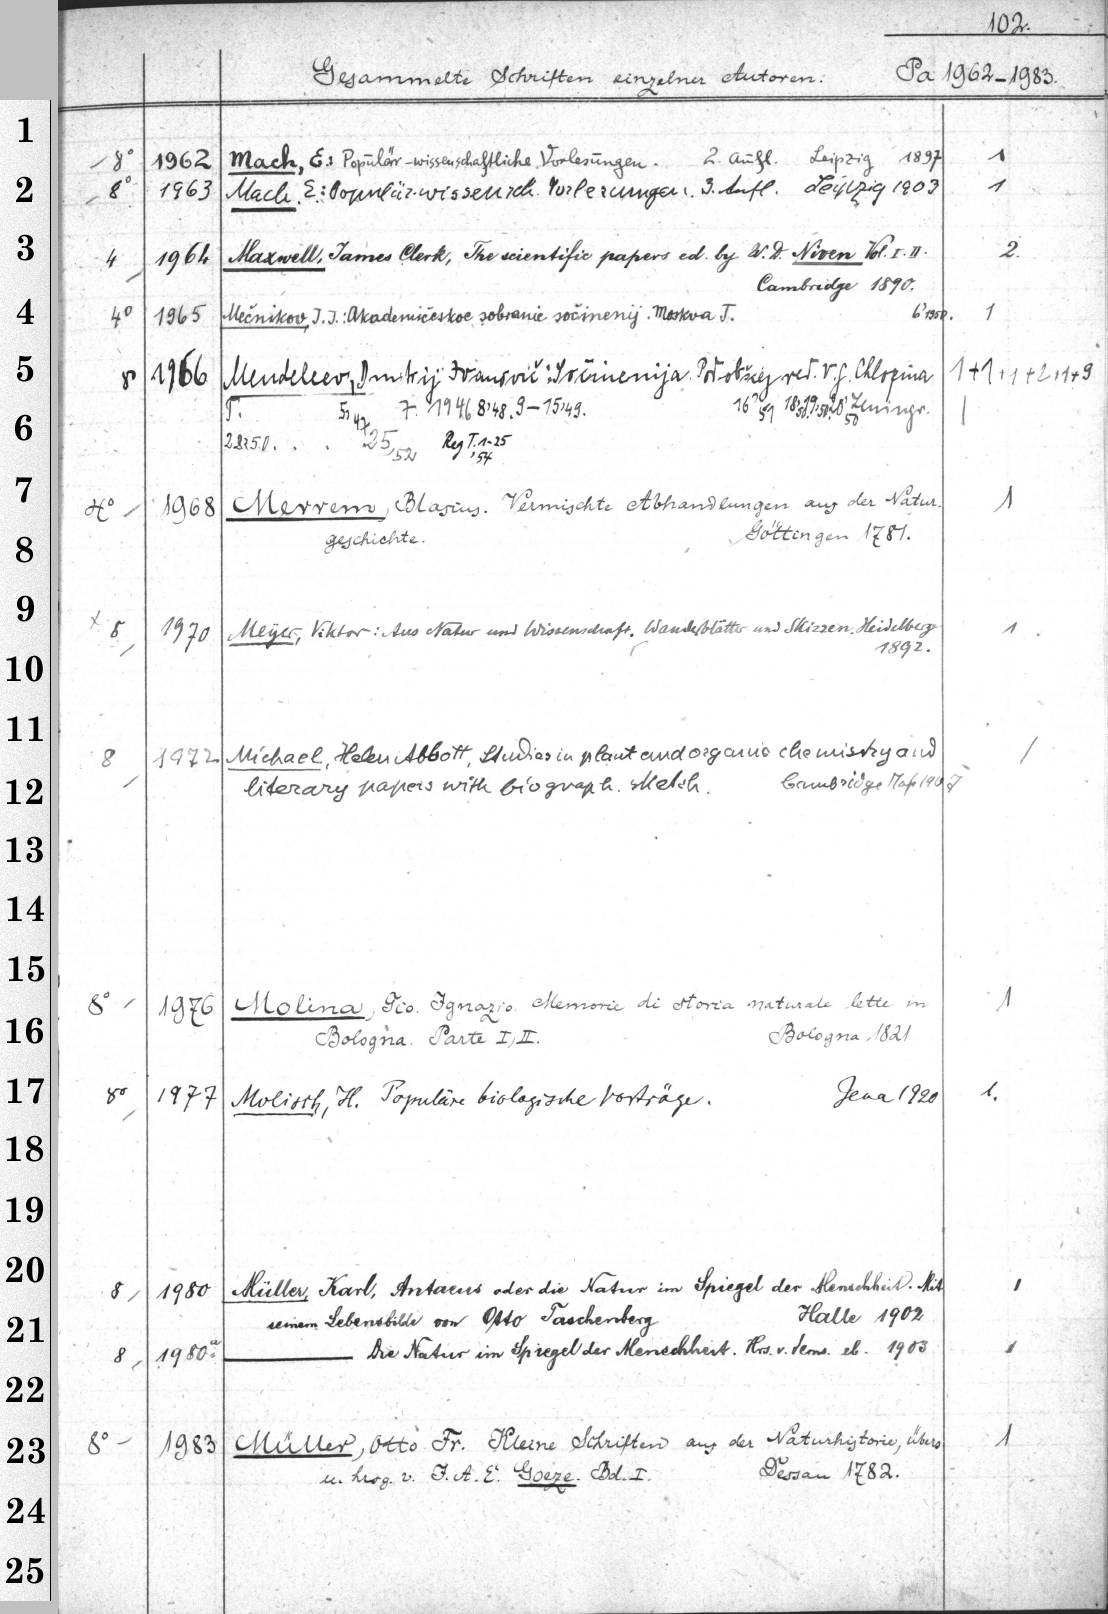 102.
Gesammelte Schriften einzelner Autoren. Pa 1962-1983.
1
8° 1962 Mach, E: Populär-wissenschaftliche Vorlesungen. 2. Aufl. Leipzig 1897 1
2
8° 1963 Mach, E.: Populär-wissensch. Vorlesungen. 3. Aufl. Leipzig 1903 1
3
4 1964 Maxwell, James Clerk, The scientific papers ed. by W. D. Niven Vol. I. II. 2.
Cambridge 1890.
4
4° 1965 Mečnikov, I. I.: Akademičeskoe sobranie sočinenij. Moskva T. 6° 1950. 1
5
8 1966 Mendeleev, Dmitrij Ivanovič: Sočinenija. Pod obščej red. V. G. Chlopina 1+1+1+2+1+9
T. 5,47 7. 1946 8,48. 9-15,49. 16,51 Leningr. 1
6
25,52 Reg T. 1-25,54
7
4° 1968 Merrem, Blasius. Vermischte Abhandlungen aus der Natur- 1
8
geschichte. Göttingen 1781.
9
8 1970 Meyer, Viktor: Aus Natur und Wissenschaft. Wanderblätter und Skizzen. Heidelberg 1.
1892.
10
11
8 1972 Michael, Helen Abbott, Studies in plant and organic chemistry and 1
12
literary papers with biograph. sketch. Cambridge
13
14
15
8° 1976 Molina, Gio. Ignazio. Memorie di storia naturale lette in 1
16
Bologna. Parte I, II. Bologna 1821
17
8° 1977 Molisch, H. Populäre biologische Vorträge. Jena 1920 1.
18
19
20
8, 1980 Müller, Karl, Antaeus oder die Natur im Spiegel der Menschheit. Mit 1
21
seinem Lebensbilde von Otto Taschenberg Halle 1902
8, 1980a Die Natur im Spiegel der Menschheit. Hrs. v. dems. eb. 1903 1
22
23
8° 1983 Müller, Otto Fr. Kleine Schriften aus der Naturhistorie, übers 1
u. hrsg. v. J. A. E. Goeze. Bd. I. Dessau 1782.
24
25